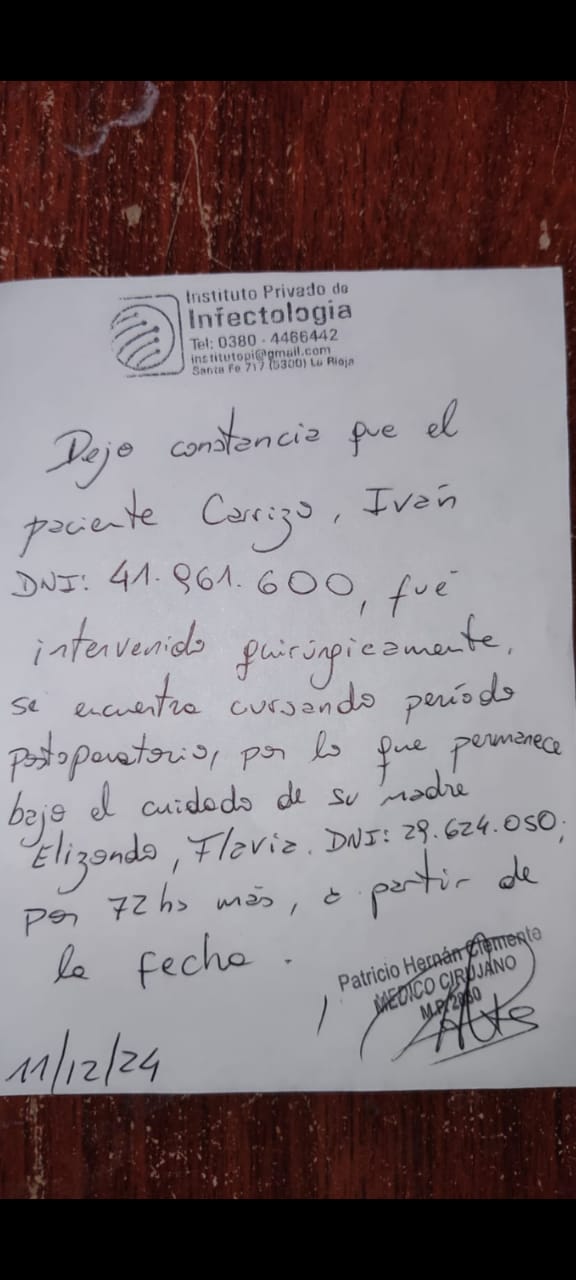 Instituto Privado de
Infectologia
Tel: 0380 - 4466442
institutopi@gmail.com
Santa Fe 717 (5300) La Rioja
Dejo constancia que el
paciente Carrizo, Iván
DNI: 41.961.600, fué
intervenido quirúrgicamente,
se encuentra cursando período
postoperatorio, por lo que permanece
bajo el cuidado de su madre
Elizondo, Flavia. DNI: 29.624.050;
por 72hs más, a partir de
la fecha.
Patricio Hernán Clemente
MEDICO CIRUJANO
M.P. 2860
11/12/24